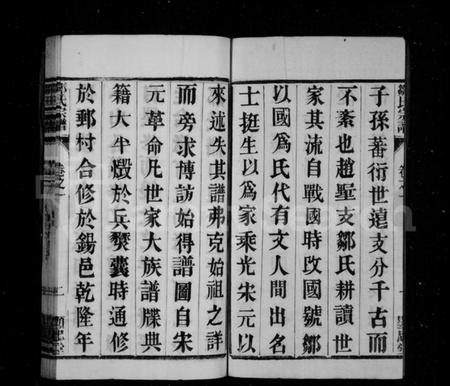 子孫蕃衍世遠支分千古而
不紊也趙墅支鄒氏耕讀世
家其流自戰國時改國號鄒
以國爲氏代有文人間出名
士挺生以爲家乘光宋元以
來述失其譜弗克始祖之詳
而旁求博訪始得譜圖自宋
元革命凡世家大族譜牒典
籍大半燬於兵燹曩時通修
於郵村合修於錫邑乾隆年
氏宗譜
卷之一